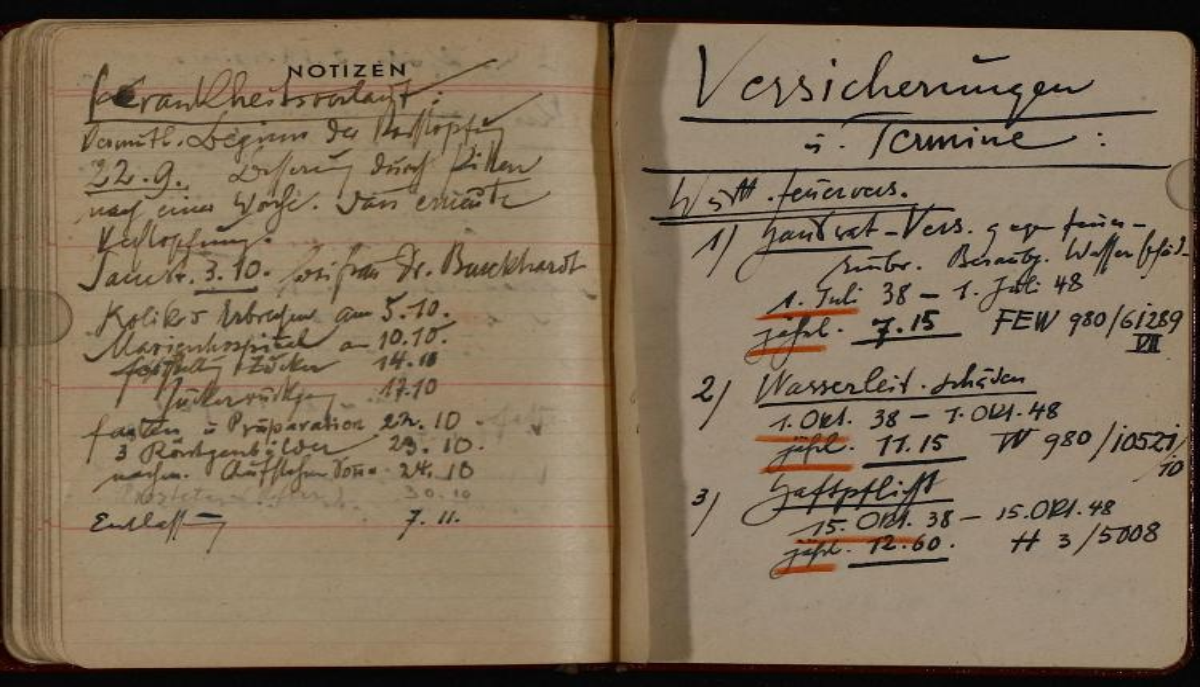 NOTIZEN
Krankheitsverlauf:
Vermutl. Beginn der Verstopfung
22.9. Besserung durch Pillen
nach einer Woche. Dann erneute
Verstopfung.
3.10. Frau Dr. Burckhardt
Koliken u Erbrechen am 5.10.
Marienhospital am 10.10.
Zucker 14.10
Zuckerrückgang 17.10
fasten u Präparation 22.10.
3 Röntgenbilder 23.10.
nachm. Aufstehen 24.10
30.10
Entlassung 7.11.
Versicherungen
u. Termine :
Württ. feuervers.
1) Hausrat-Vers. gegen feuer-
Einbr. Beraubg. Wasserschäd.
1. Juli 38 – 1. Juli 48
jährl. 7.15 FEW 980/61289
VII
2) Wasserleit. schäden
1. Okt. 38 – 1. Okt. 48
jährl. 11.15 W 980/10521/
10
3) Haftpflicht
15. Okt. 38 – 15. Okt. 48
jährl. 12.60. H 3/5008